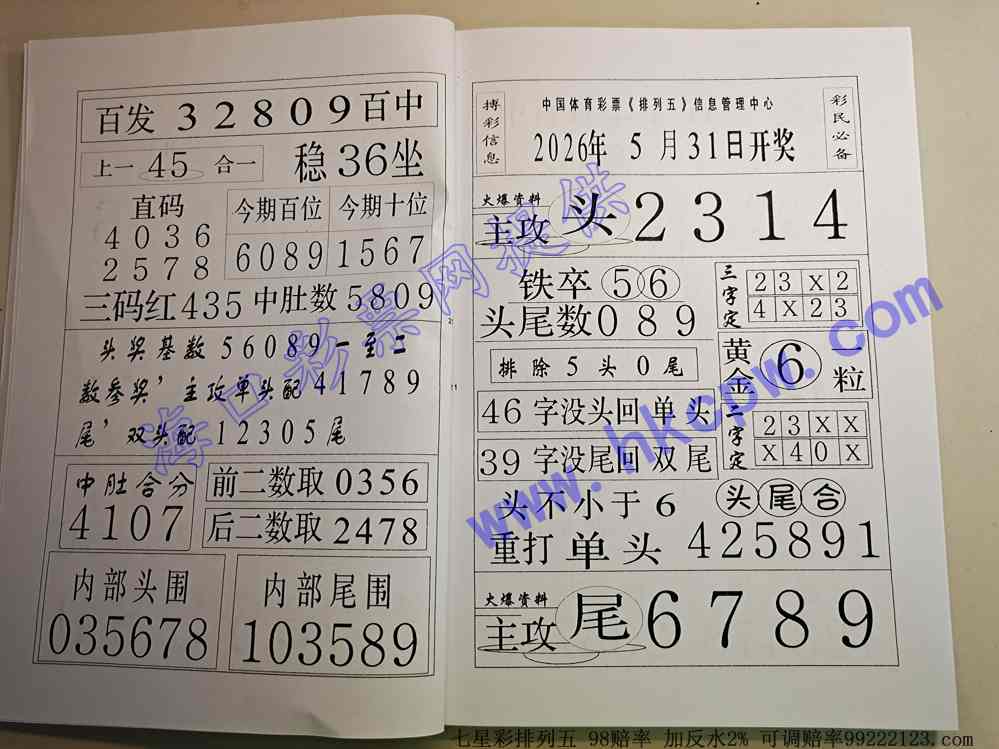 百发 32809 百中
上一 45 合一 稳36坐
直码
4036
2578
今期百位 今期十位
6089 1567
三码红435 中肚数5809
头奖基数56089一至二
数参奖，主攻单头配41789
尾，双头配12305尾
中肚合分
4107
前二数取0356
后二数取2478
内部头围
035678
内部尾围
103589
搏彩信息
中国体育彩票《排列五》信息管理中心
2026年 5月31日开奖
彩民必备
火爆资料
主攻 头 2314
铁卒 56
头尾数089
排除5头0尾
三字定
23X2
4X23
46字没头回单头
39字没尾回双尾
黄金 6 一粒
二字定
23XX
X40X
头不小于6
头尾合
重打单头 425891
火爆资料
主攻 尾 6789
海口彩票网提供
www.hkcpw.com
七星彩排列五 98赔率 加反水2% 可调赔率99222123.com